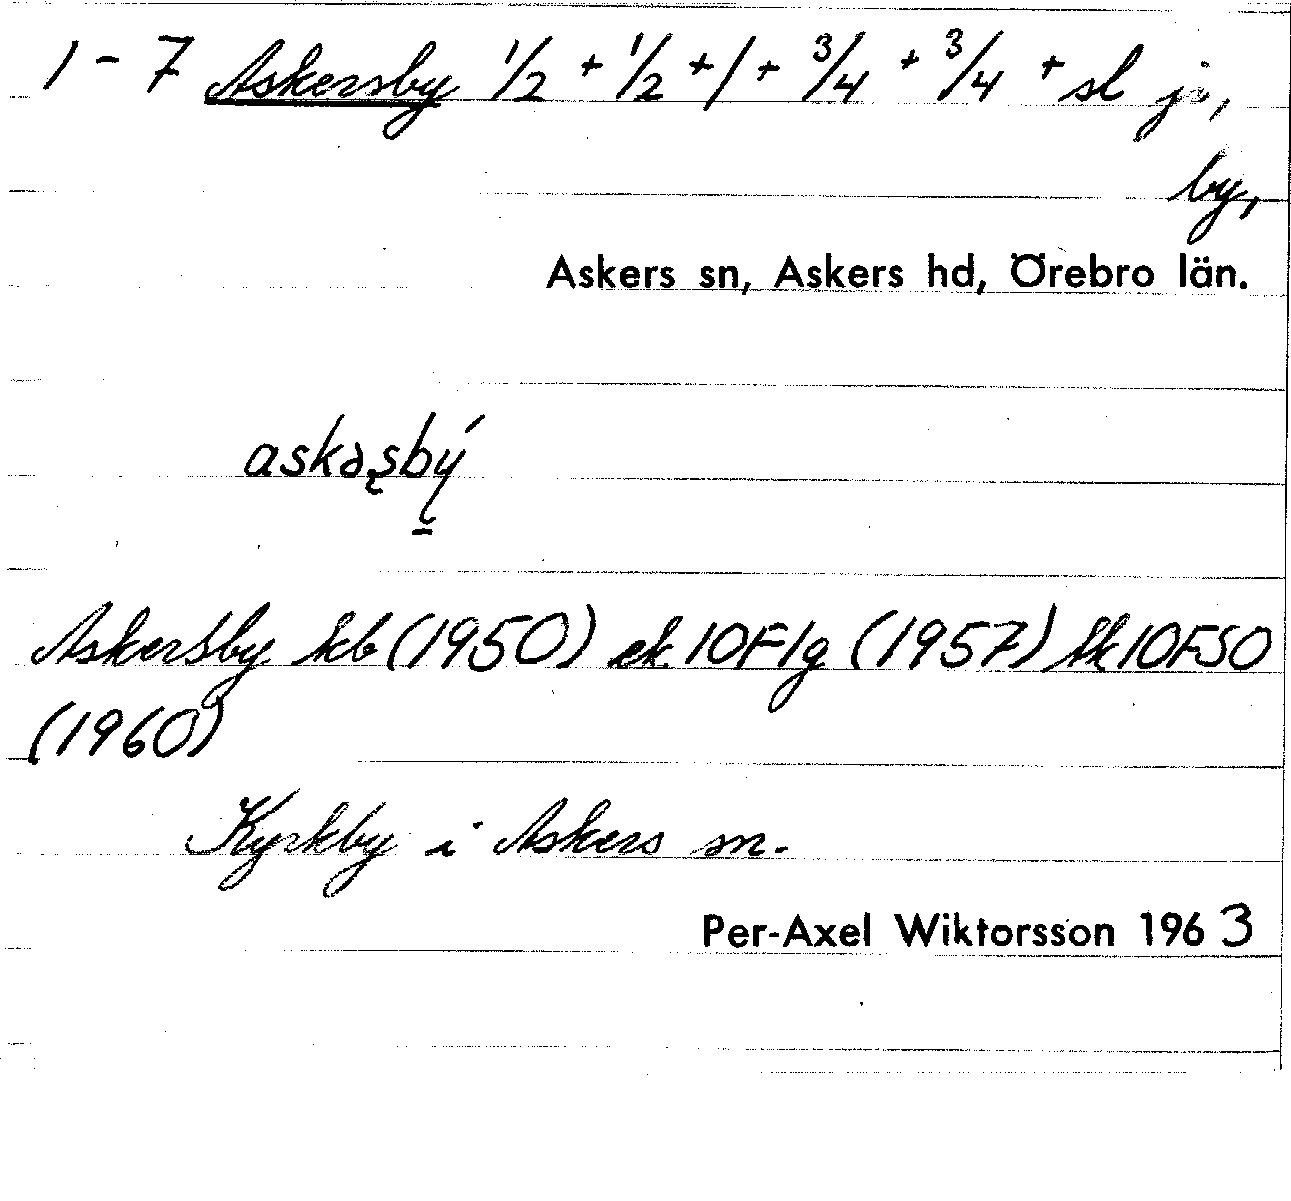 1-7 Askersby 1/2 + 1/2 + 1 + 3/4 + 3/4 + sl jo,
by,
Askers sn, Askers hd, Örebro län.
askəşbý
Askersby kb (1950) ek 10F1g (1957) tk 10FSO
(1960)
Kyrkby i Askers sn.
Per-Axel Wiktorsson 1963